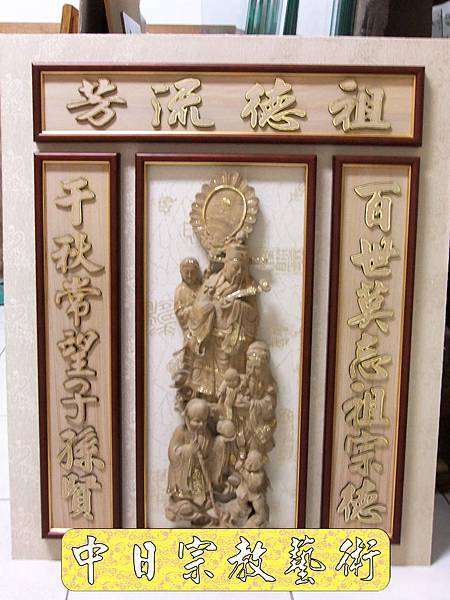 祖德流芳
百世莫忘祖宗德
千秋常望子孫賢
中日宗教藝術